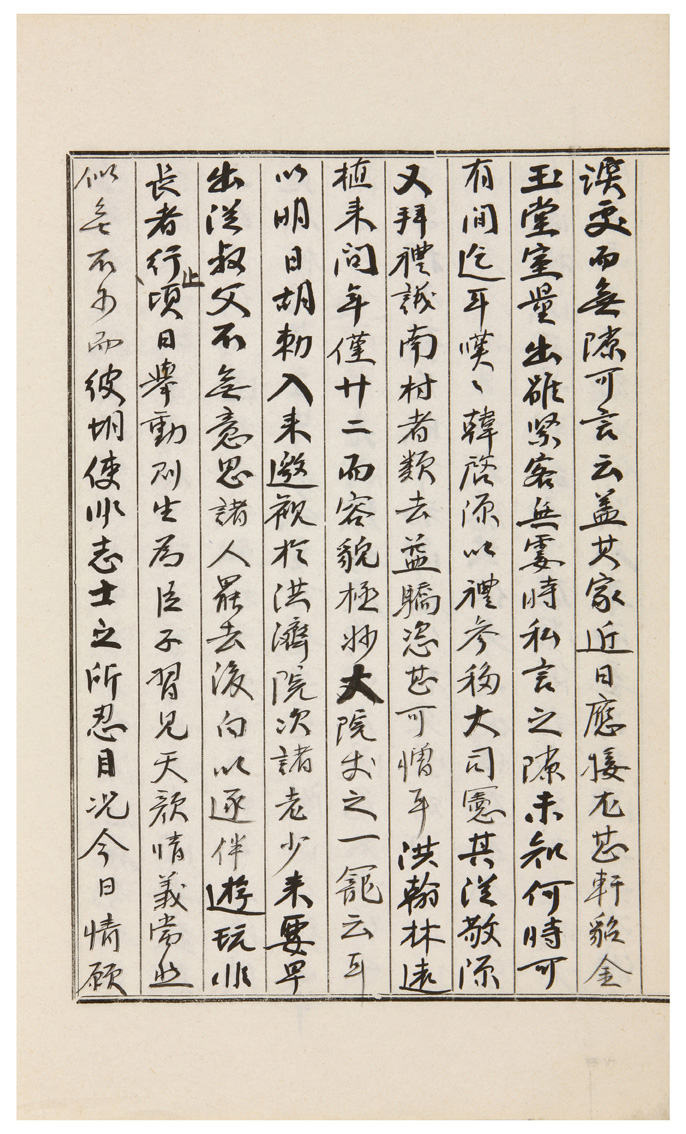 更而無隙可言云盖其家近日應接尤甚軒貂金
玉堂室量出雖緊客無霎時私言之隙未知何時可
有間迄耳嘆〻韓啓源以禮參移大司憲其從敬源
又拜禮議南村者類去益驕恣甚可憎耳洪翰林遠
植来問年僅廿二而容貌極妙大院丈之一寵云耳
以明日胡勅入来邀視於洪濟院次諸老少来要早
出從叔父不無意思諸人罷去後白以逐伴遊玩非
長者行止頃日擧動則生爲臣子習見天顔情義當然
似無不可而彼胡使非志士之所忍目况今日情願